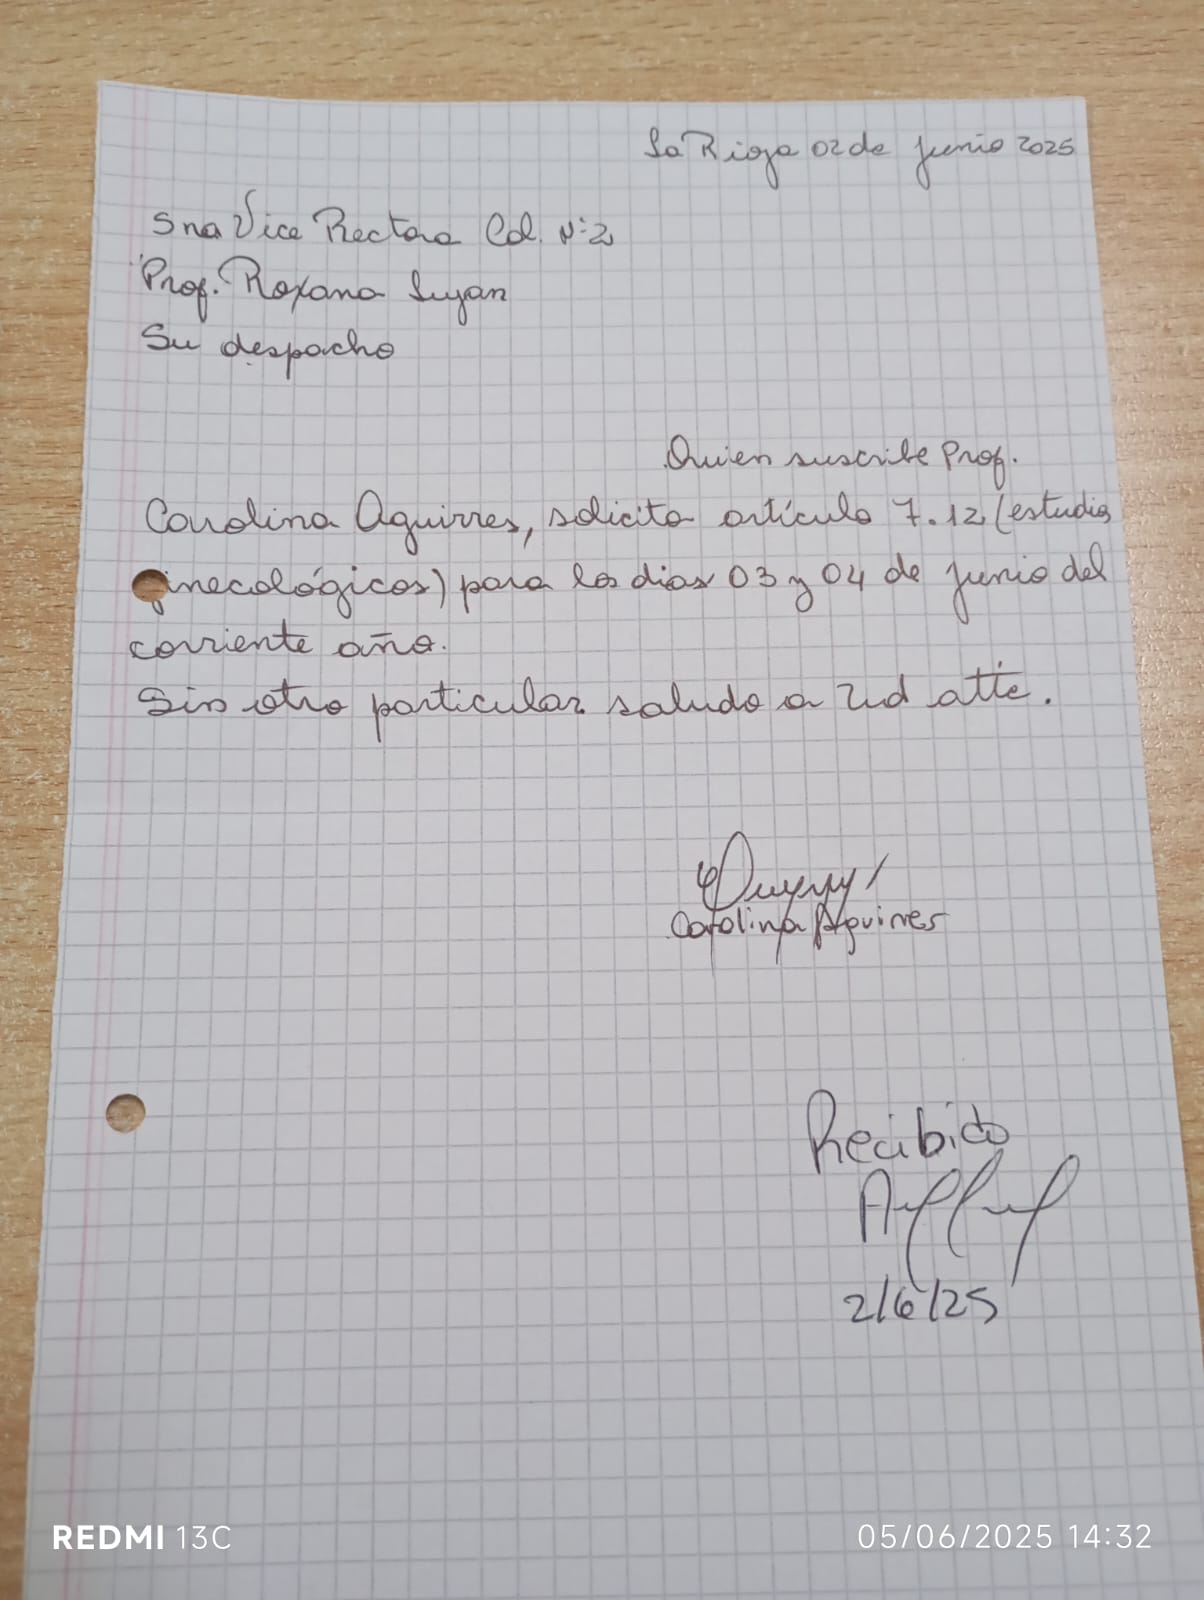 La Rioja 02 de junio 2025
Sra Vice Rectora Col. N° 2
Prof. Roxana Lujan
Su despacho
Quien suscribe Prof.
Carolina Aguirres, solicita artículo 7.12 (estudios
ginecológicos) para los dias 03 y 04 de junio del
corriente año.
Sin otro particular saludo a Ud atte.
Carolina Aguirres
Recibido
2/6/25
REDMI 13C
05/06/2025 14:32